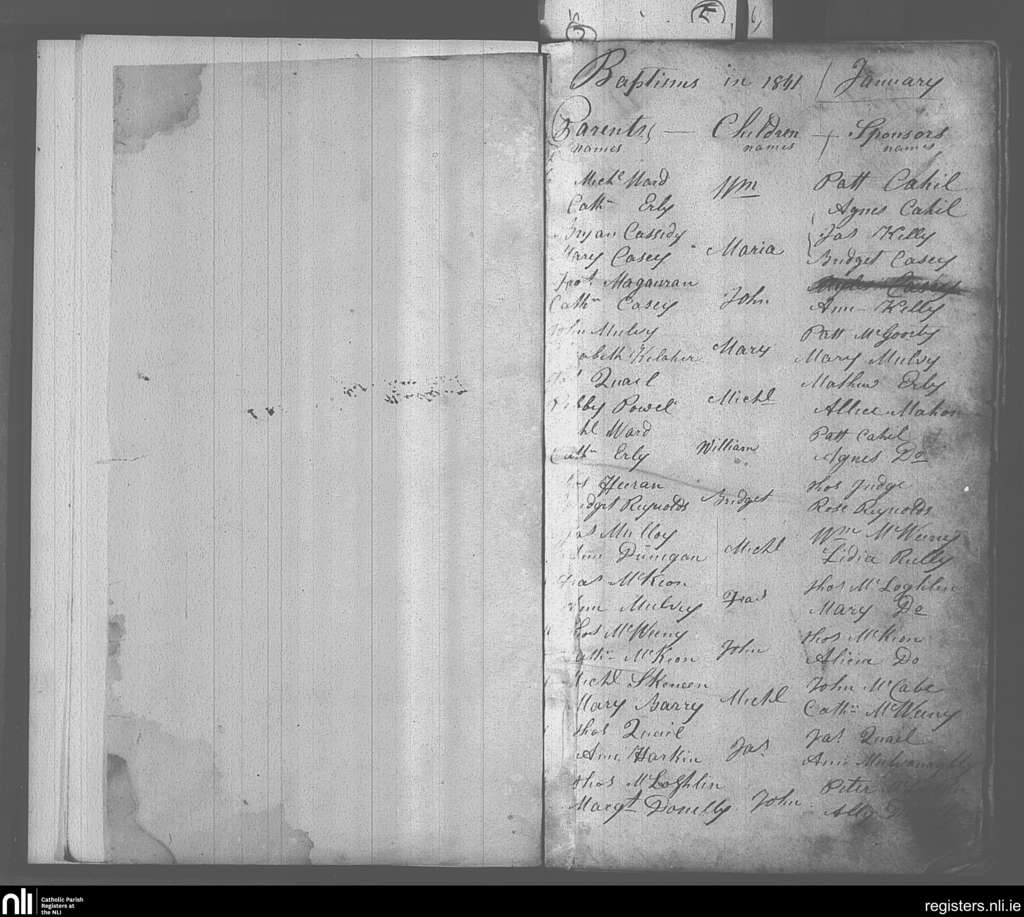 Baptisms in 1841 / January
Parents names — Children names — Sponsors names
Michl Ward Wm Patt Cahil
Cathn Erly Agnes Cahil
Bryan Cassidy Jas Kelly
Mary Casey Maria Bridget Casey
Magauran
Cathn Casey John Ann Kelly
John Mulvy Patt McGoorty
Kelaher Mary Mary Mulvy
Quail Mathew Erly
Powel Michl Allice Mahon
hl Ward Patt Cahil
Cathn Erly William Agnes Do
Heeran Thos Judge
Bridget Reynolds Bridget Rose Reynolds
Jas Mulloy Wm McWeeny
Ann Dunigan Michl Lidia Reilly
Fras McKeon Thos McLoghlin
Ann Mulvey Fras Mary Do
Thos McWeeny Thos McKeon
Cathn McKeon John Alicia Do
Michl Skeneen John McCabe
Mary Barry Michl Cathn McWeeny
Thos Quail Jas Quail
Ann Harkin Jas Ann
Thos McLoghlin Peter
Margt Donelly John Ally
nli
Catholic Parish
Registers at
the NLI
registers.nli.ie